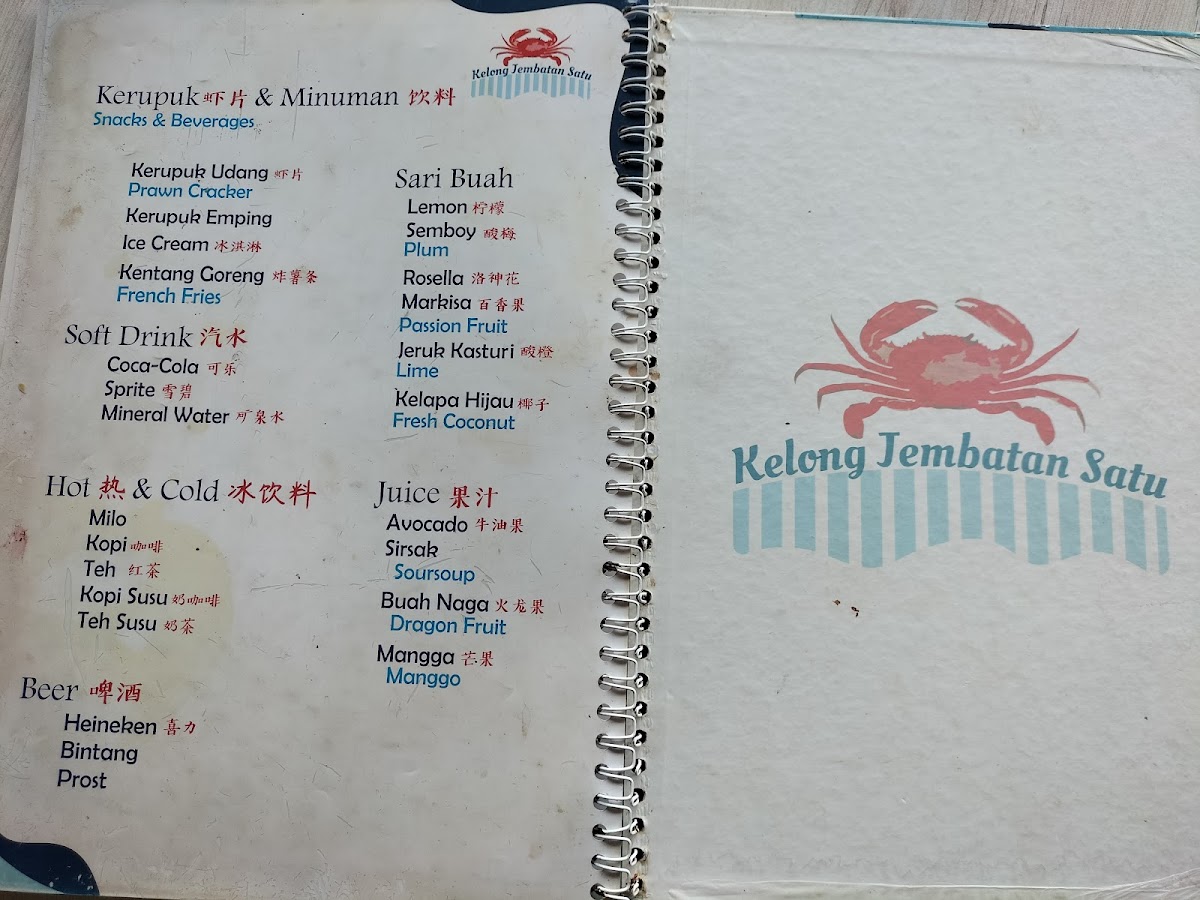 Kelong Jembatan Satu
Kerupuk 虾片 & Minuman 饮料
Snacks & Beverages
Kerupuk Udang 虾片
Prawn Cracker
Kerupuk Emping
Ice Cream 冰淇淋
Kentang Goreng 炸薯条
French Fries
Soft Drink 汽水
Coca-Cola 可乐
Sprite 雪碧
Mineral Water 矿泉水
Hot 热 & Cold 冰饮料
Milo
Kopi 咖啡
Teh 红茶
Kopi Susu 奶咖啡
Teh Susu 奶茶
Beer 啤酒
Heineken 喜力
Bintang
Prost
Sari Buah
Lemon 柠檬
Semboy 酸梅
Plum
Rosella 洛神花
Markisa 百香果
Passion Fruit
Jeruk Kasturi 酸橙
Lime
Kelapa Hijau 椰子
Fresh Coconut
Juice 果汁
Avocado 牛油果
Sirsak
Soursoup
Buah Naga 火龙果
Dragon Fruit
Mangga 芒果
Manggo
Kelong Jembatan Satu